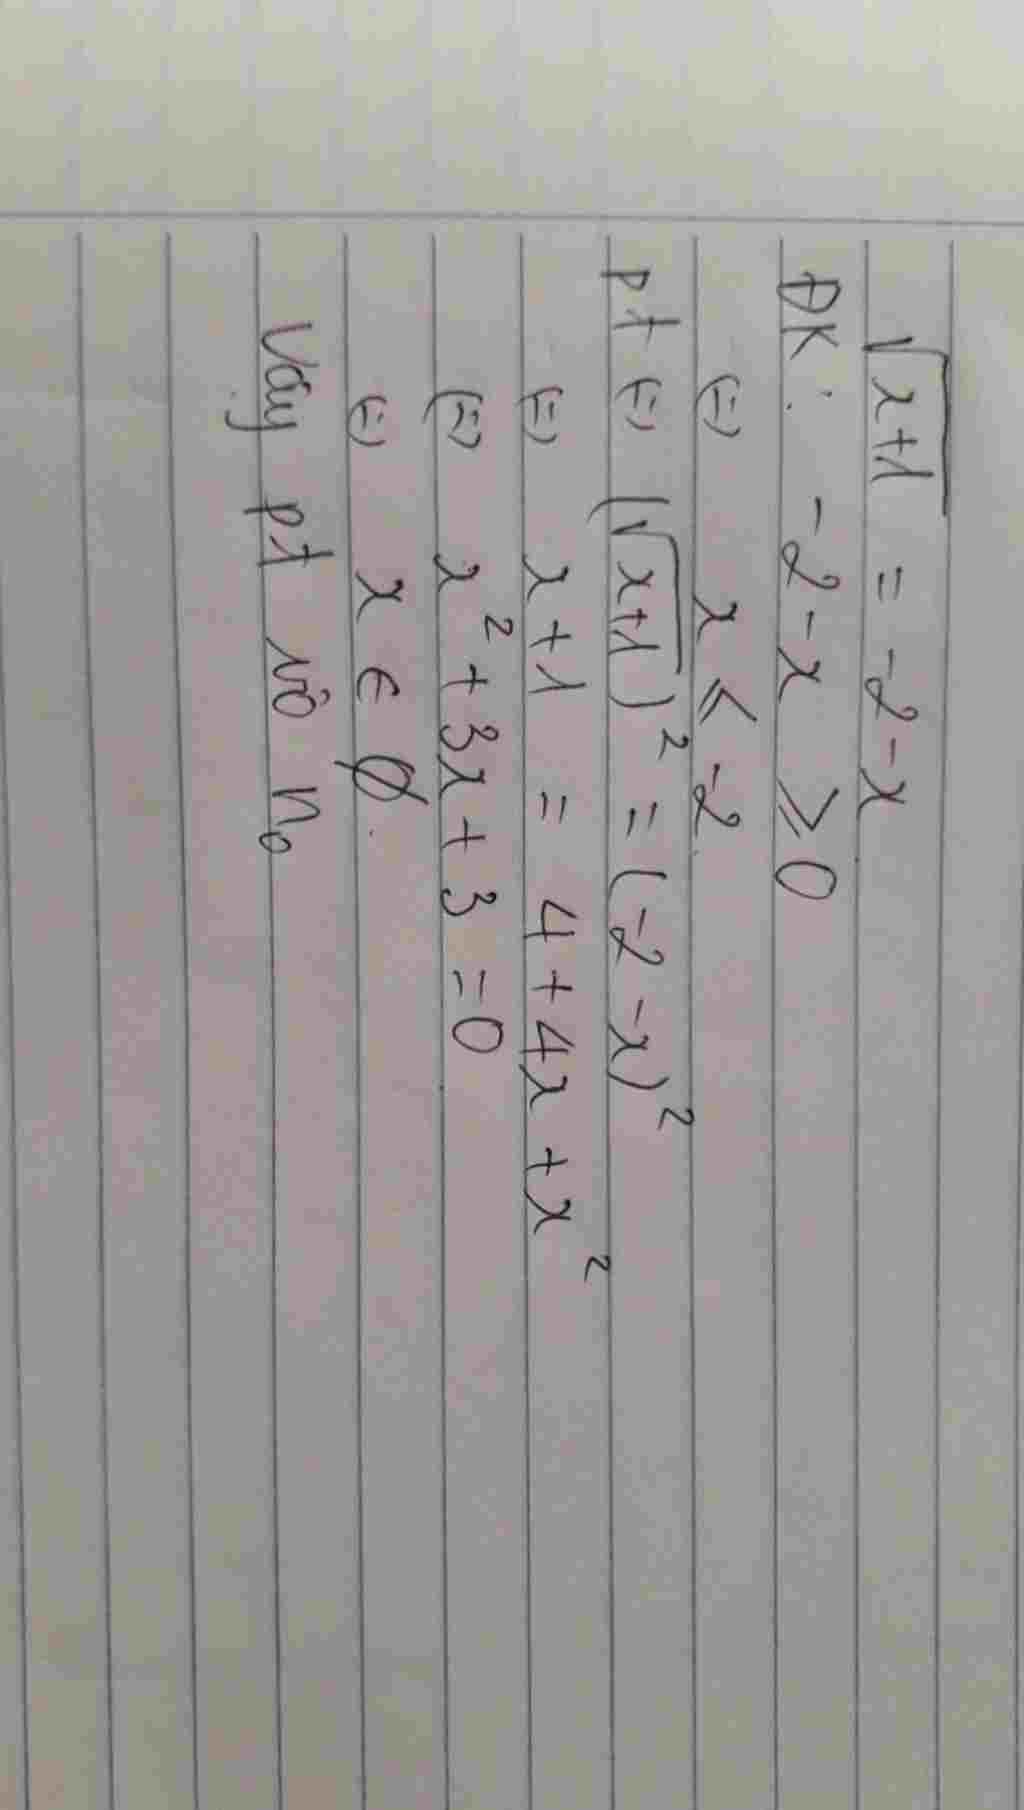 √(x+1) = -2-x
ĐK: -2-x ⩾ 0
(=) x ⩽ -2
pt (=) (√(x+1))² = (-2-x)²
(=) x+1 = 4+4x+x²
(=) x²+3x+3=0
(=) x ∈ ∅.
Vậy pt vô n₀